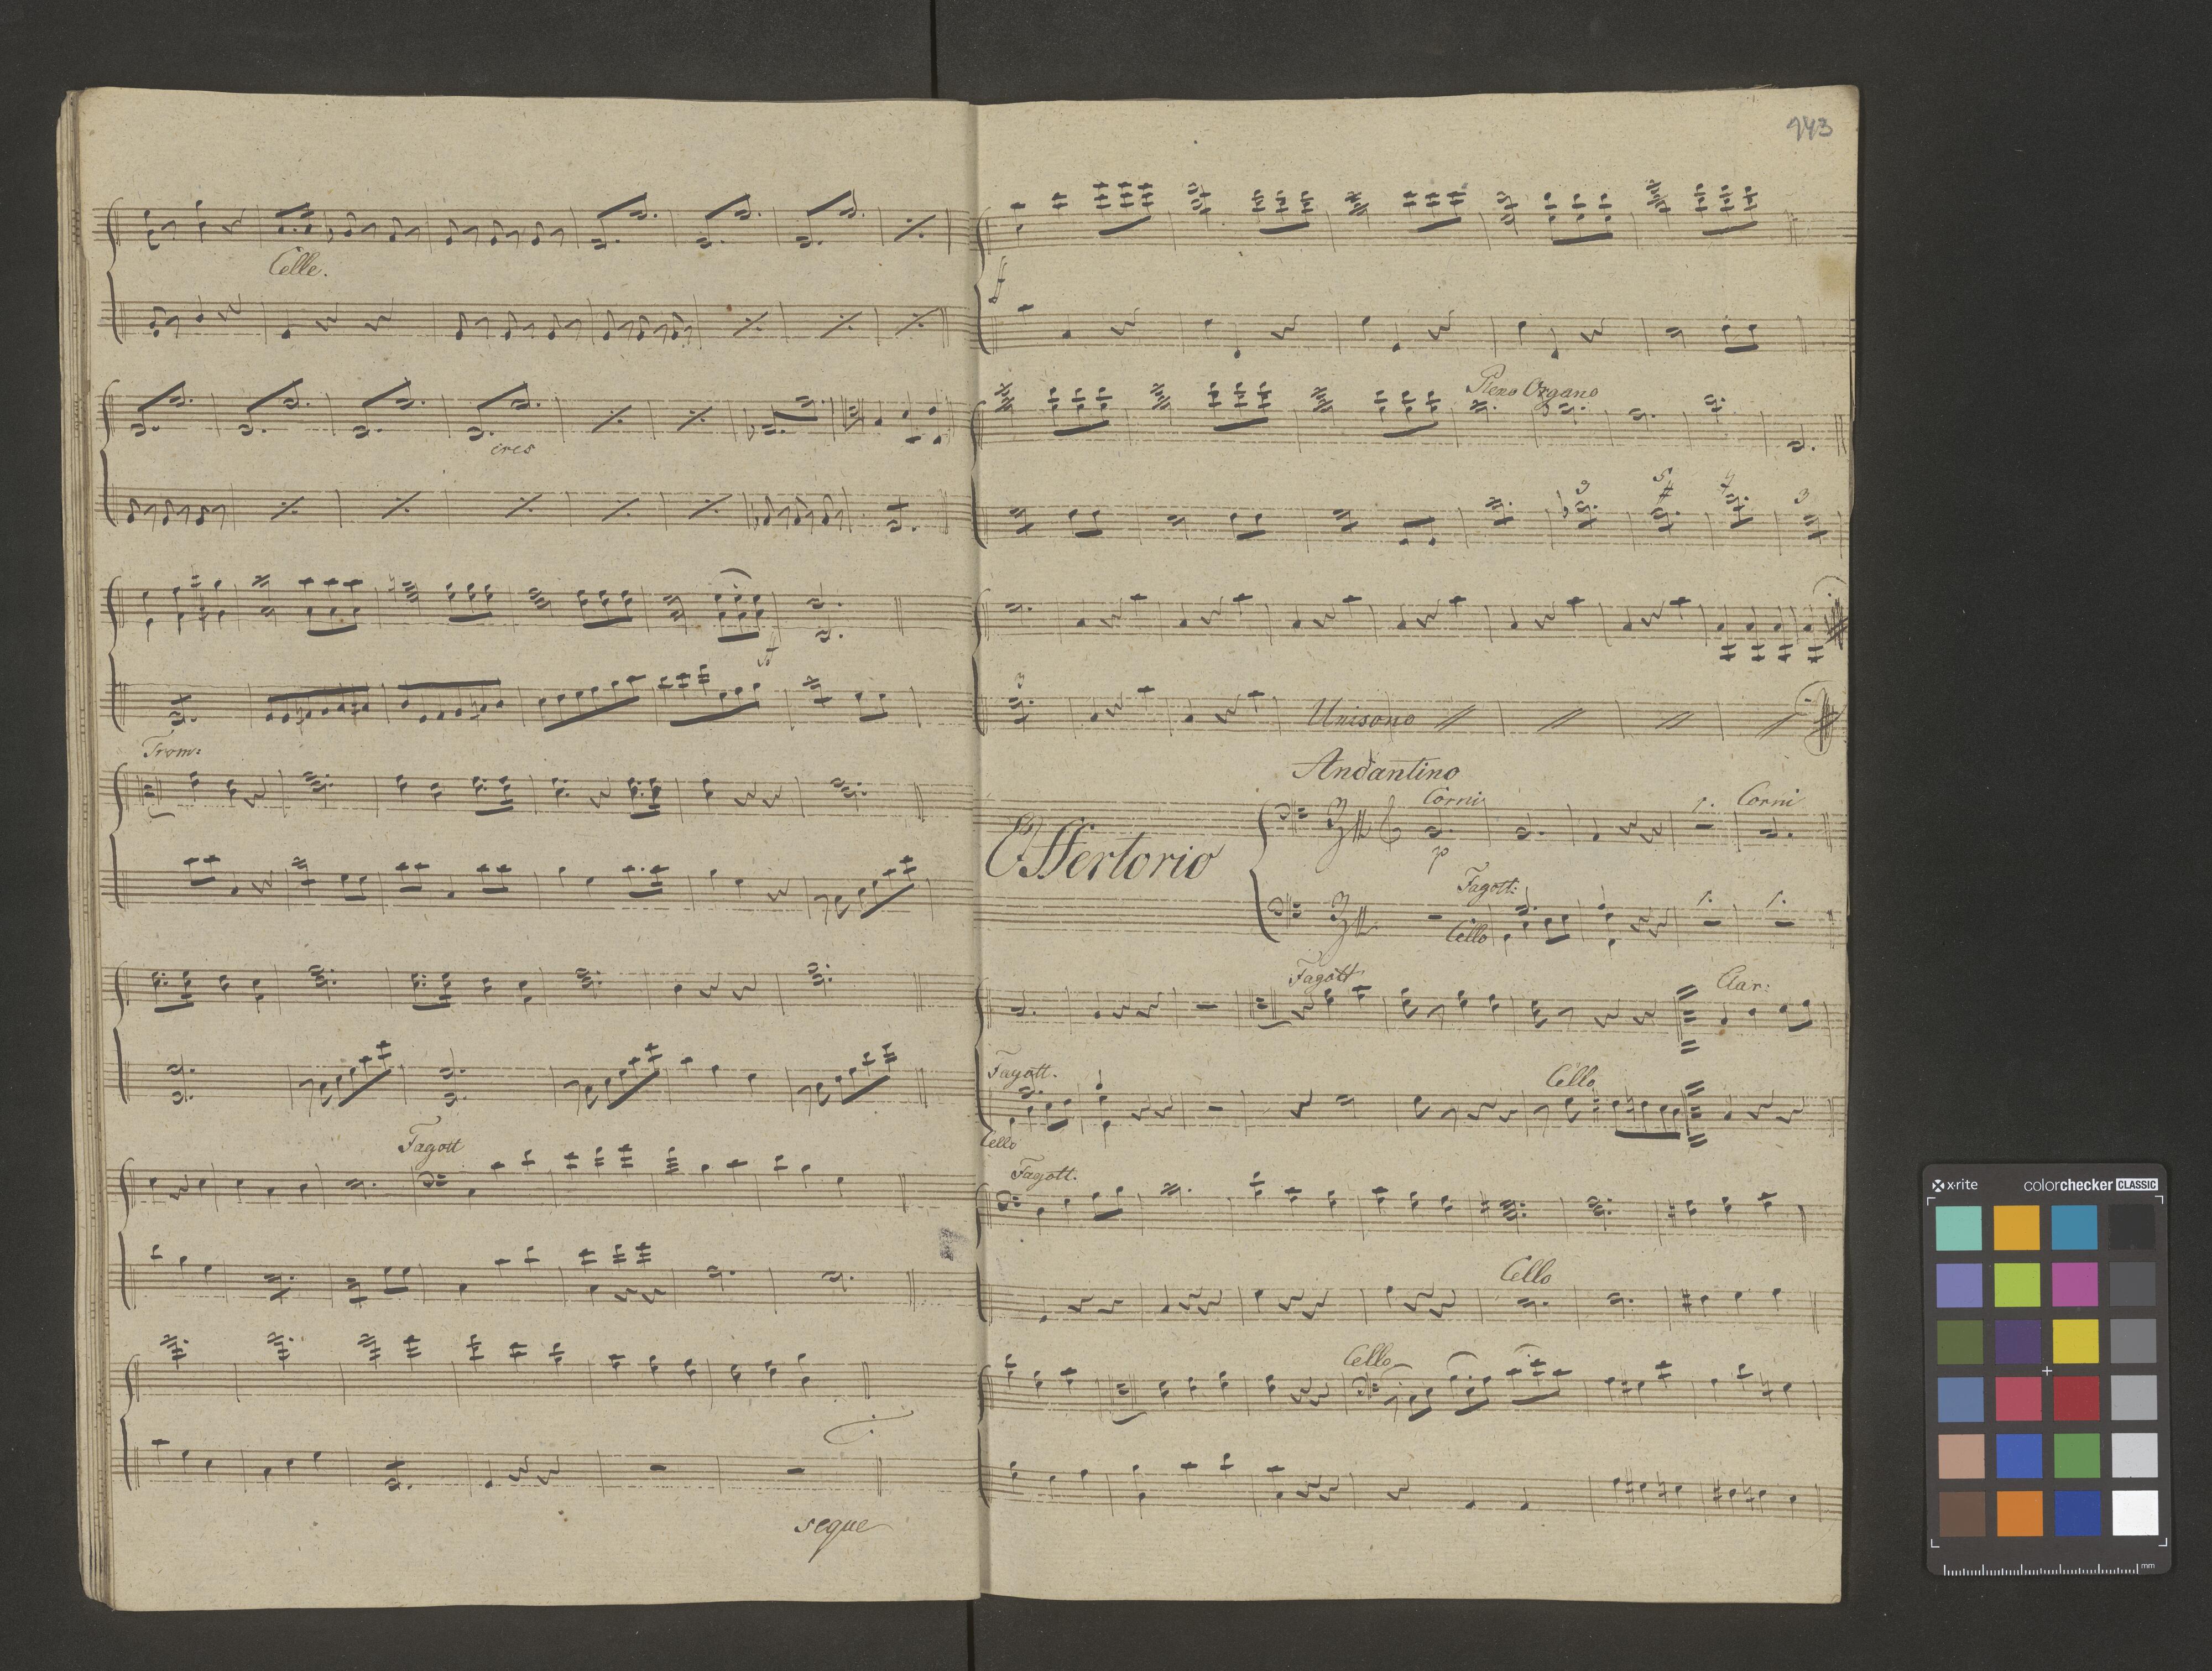 Celle.
cres
Trom:
Fagott
seque
143
f
Pieno Organo
3 5 3
3
Unisono
Andantino
Corni Corni
Offertorio
p
Fagott:
Cello
1. 1. 1.
Fagott Clar:
Fagott. Cello
Cello
Fagott.
Cello
Cello
x-rite colorchecker CLASSIC
mm